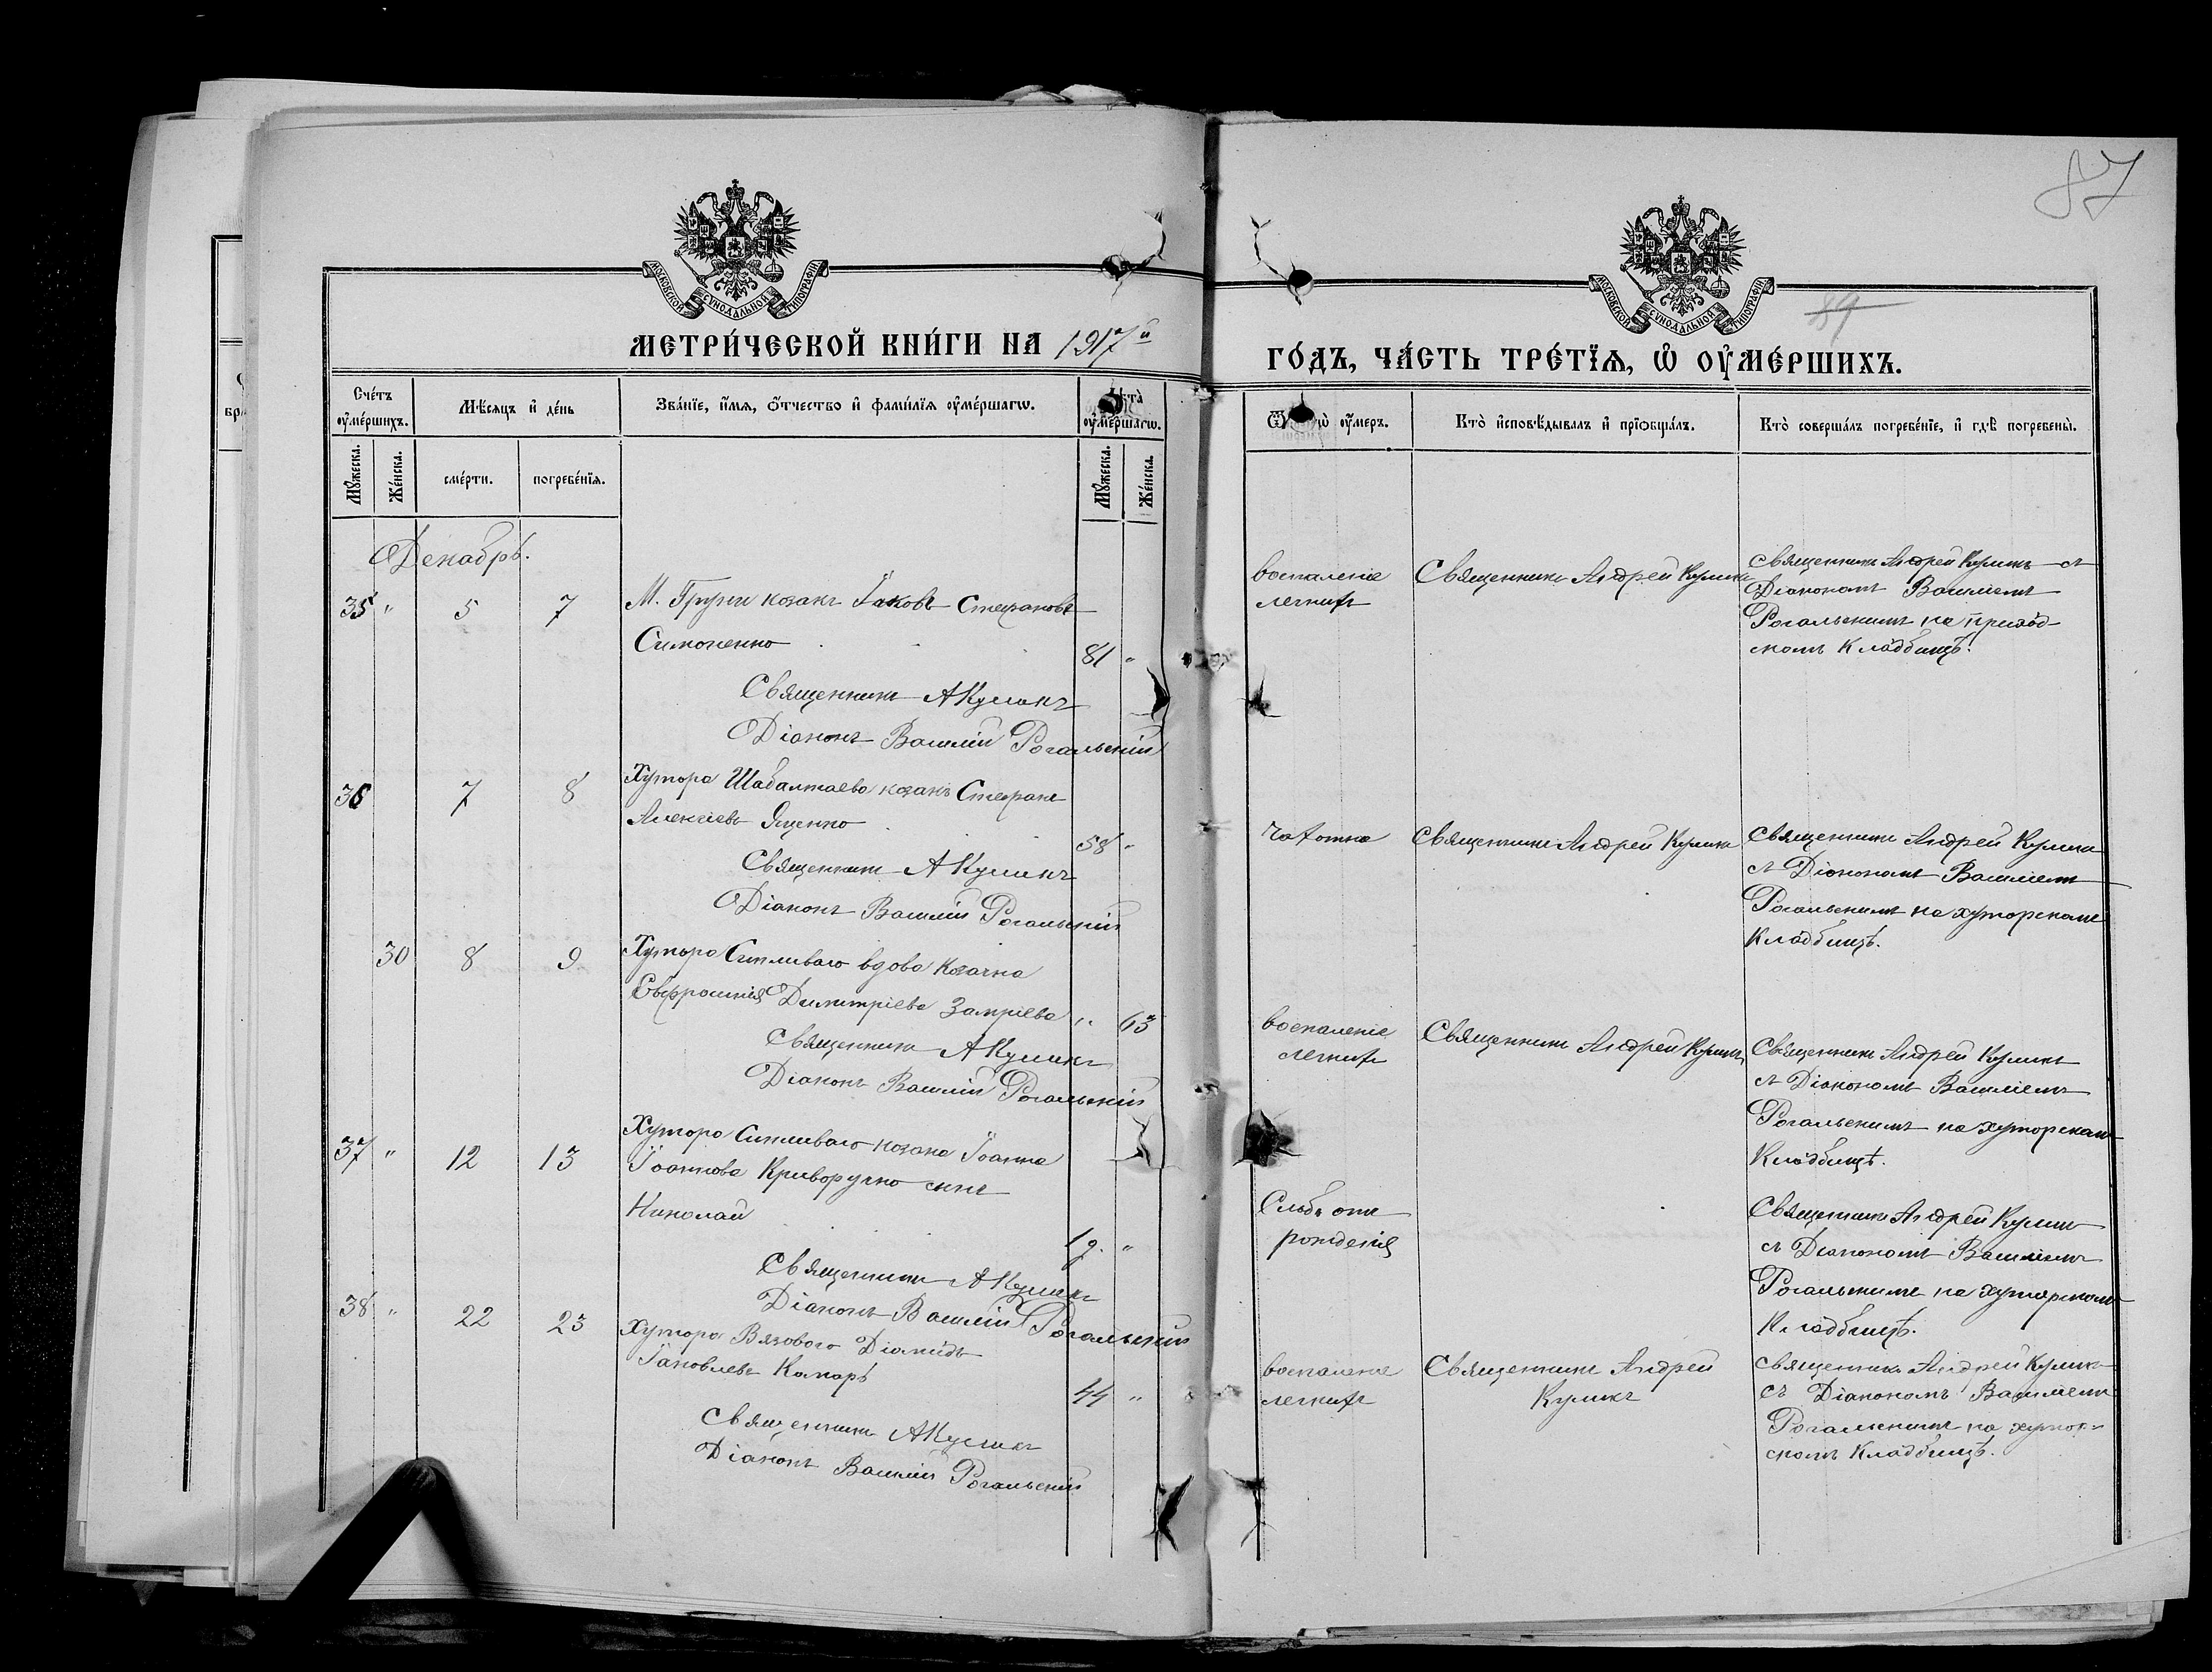 87
МОСКОВСКОЙ СѴНОДАЛЬНОЙ ТИПОГРАФІИ
МОСКОВСКОЙ СѴНОДАЛЬНОЙ ТИПОГРАФІИ
89
МЕТРИ́ЧЕСКОЙ КНИ́ГИ НА 1917й
ГО́ДЪ, ЧА́СТЬ ТРЕ́ТЇѦ, Ѡ҆ ОУ҆МЕ́РШИХЪ.
Сче́тъ оу҆ме́ршихъ.
Мѣ́сяцъ и҆ де́нь
Зва́нїе, и҆́мя, ѻ҆́тчество и҆ фамı́лїя оу҆ме́ршагѡ.
Лѣ́та оу҆ме́ршагѡ.
оу҆́меръ.
Кто̀ и҆сповѣ́дывалъ и҆ прїѡбща́лъ.
Кто̀ соверша́лъ погребе́нїе, и҆ гдѣ̀ погребены̀.
Мꙋ́жеска.
Же́нска.
сме́рти.
погребе́нїя.
Мꙋ́жеска.
Же́нска.
Декабрь.
35 " 5 7 М. Груни козакъ Іаковъ Стефановъ
Симоненко 81 "
Священникъ А Куликъ
Діаконъ Василій Рогальскій
воспаленіе
легкихъ
Священникъ Андрей Куликъ
Священникъ Андрей Куликъ съ
Діакономъ Василіемъ
Рогальскимъ на приход-
скомъ кладбищѣ.
36 7 8 Хутора Шабалтаева козакъ Стефанъ
Алексіевъ Яценко 58 "
Священникъ А Куликъ
Діаконъ Василій Рогальскій
чахотка
Священникъ Андрей Куликъ
Священникъ Андрей Куликъ
съ Діакономъ Василіемъ
Рогальскимъ на хуторскомъ
кладбищѣ.
30 8 9 Хутора вдова козачка
Евфросинія Димитріева " 63
Священникъ А Куликъ
Діаконъ Василій Рогальскій
воспаленіе
легкихъ
Священникъ Андрей Куликъ
Священникъ Андрей Куликъ
съ Діакономъ Василіемъ
Рогальскимъ на хуторскомъ
кладбищѣ.
37 " 12 13 Хутора козака Іоанна
Іоаннова Криворучко сынъ
Николай 1 г. "
Священникъ А Куликъ
Діаконъ Василій Рогальскій
рожденія
Священникъ Андрей Куликъ
съ Діакономъ Василіемъ
Рогальскимъ на хуторскомъ
кладбищѣ.
38 " 22 23 Хутора Вязового Діомидъ
Іаковлевъ Комаръ 44 "
Священникъ А Куликъ
Діаконъ Василій Рогальскій
воспаленіе
легкихъ
Священникъ Андрей
Куликъ
Священникъ Андрей Куликъ
съ Діакономъ Василіемъ
Рогальскимъ на хутор-
скомъ кладбищѣ.